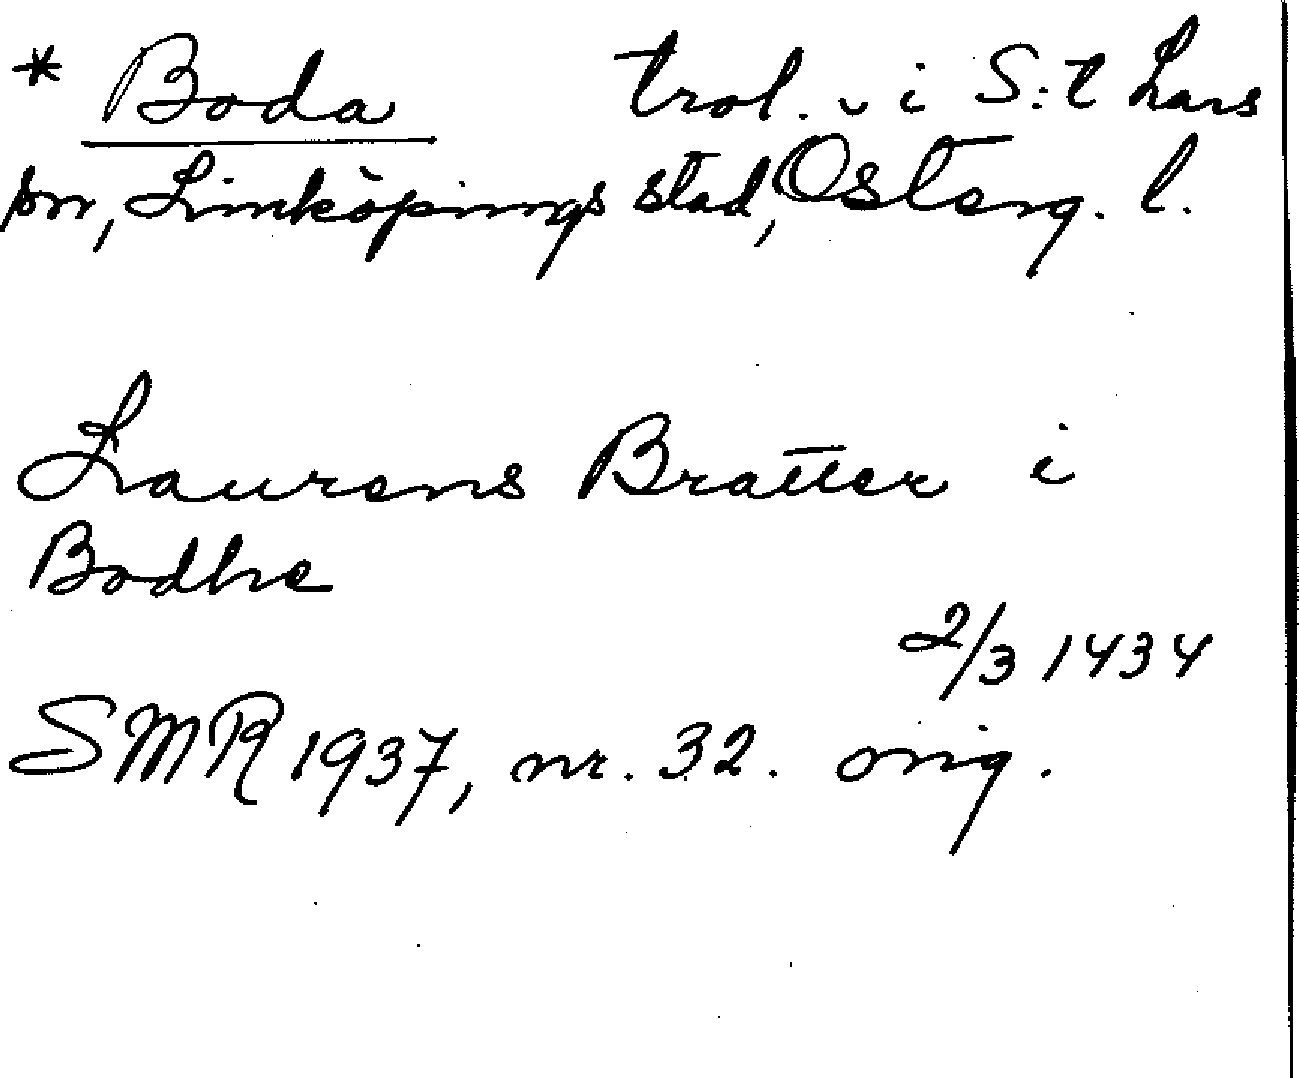 * Boda trol. i S:t Lars
sn, Linköpings stad, Österg. l.
Laurens Bratter i
Bodhe
2/3 1434
SMR 1937, nr. 32. orig.